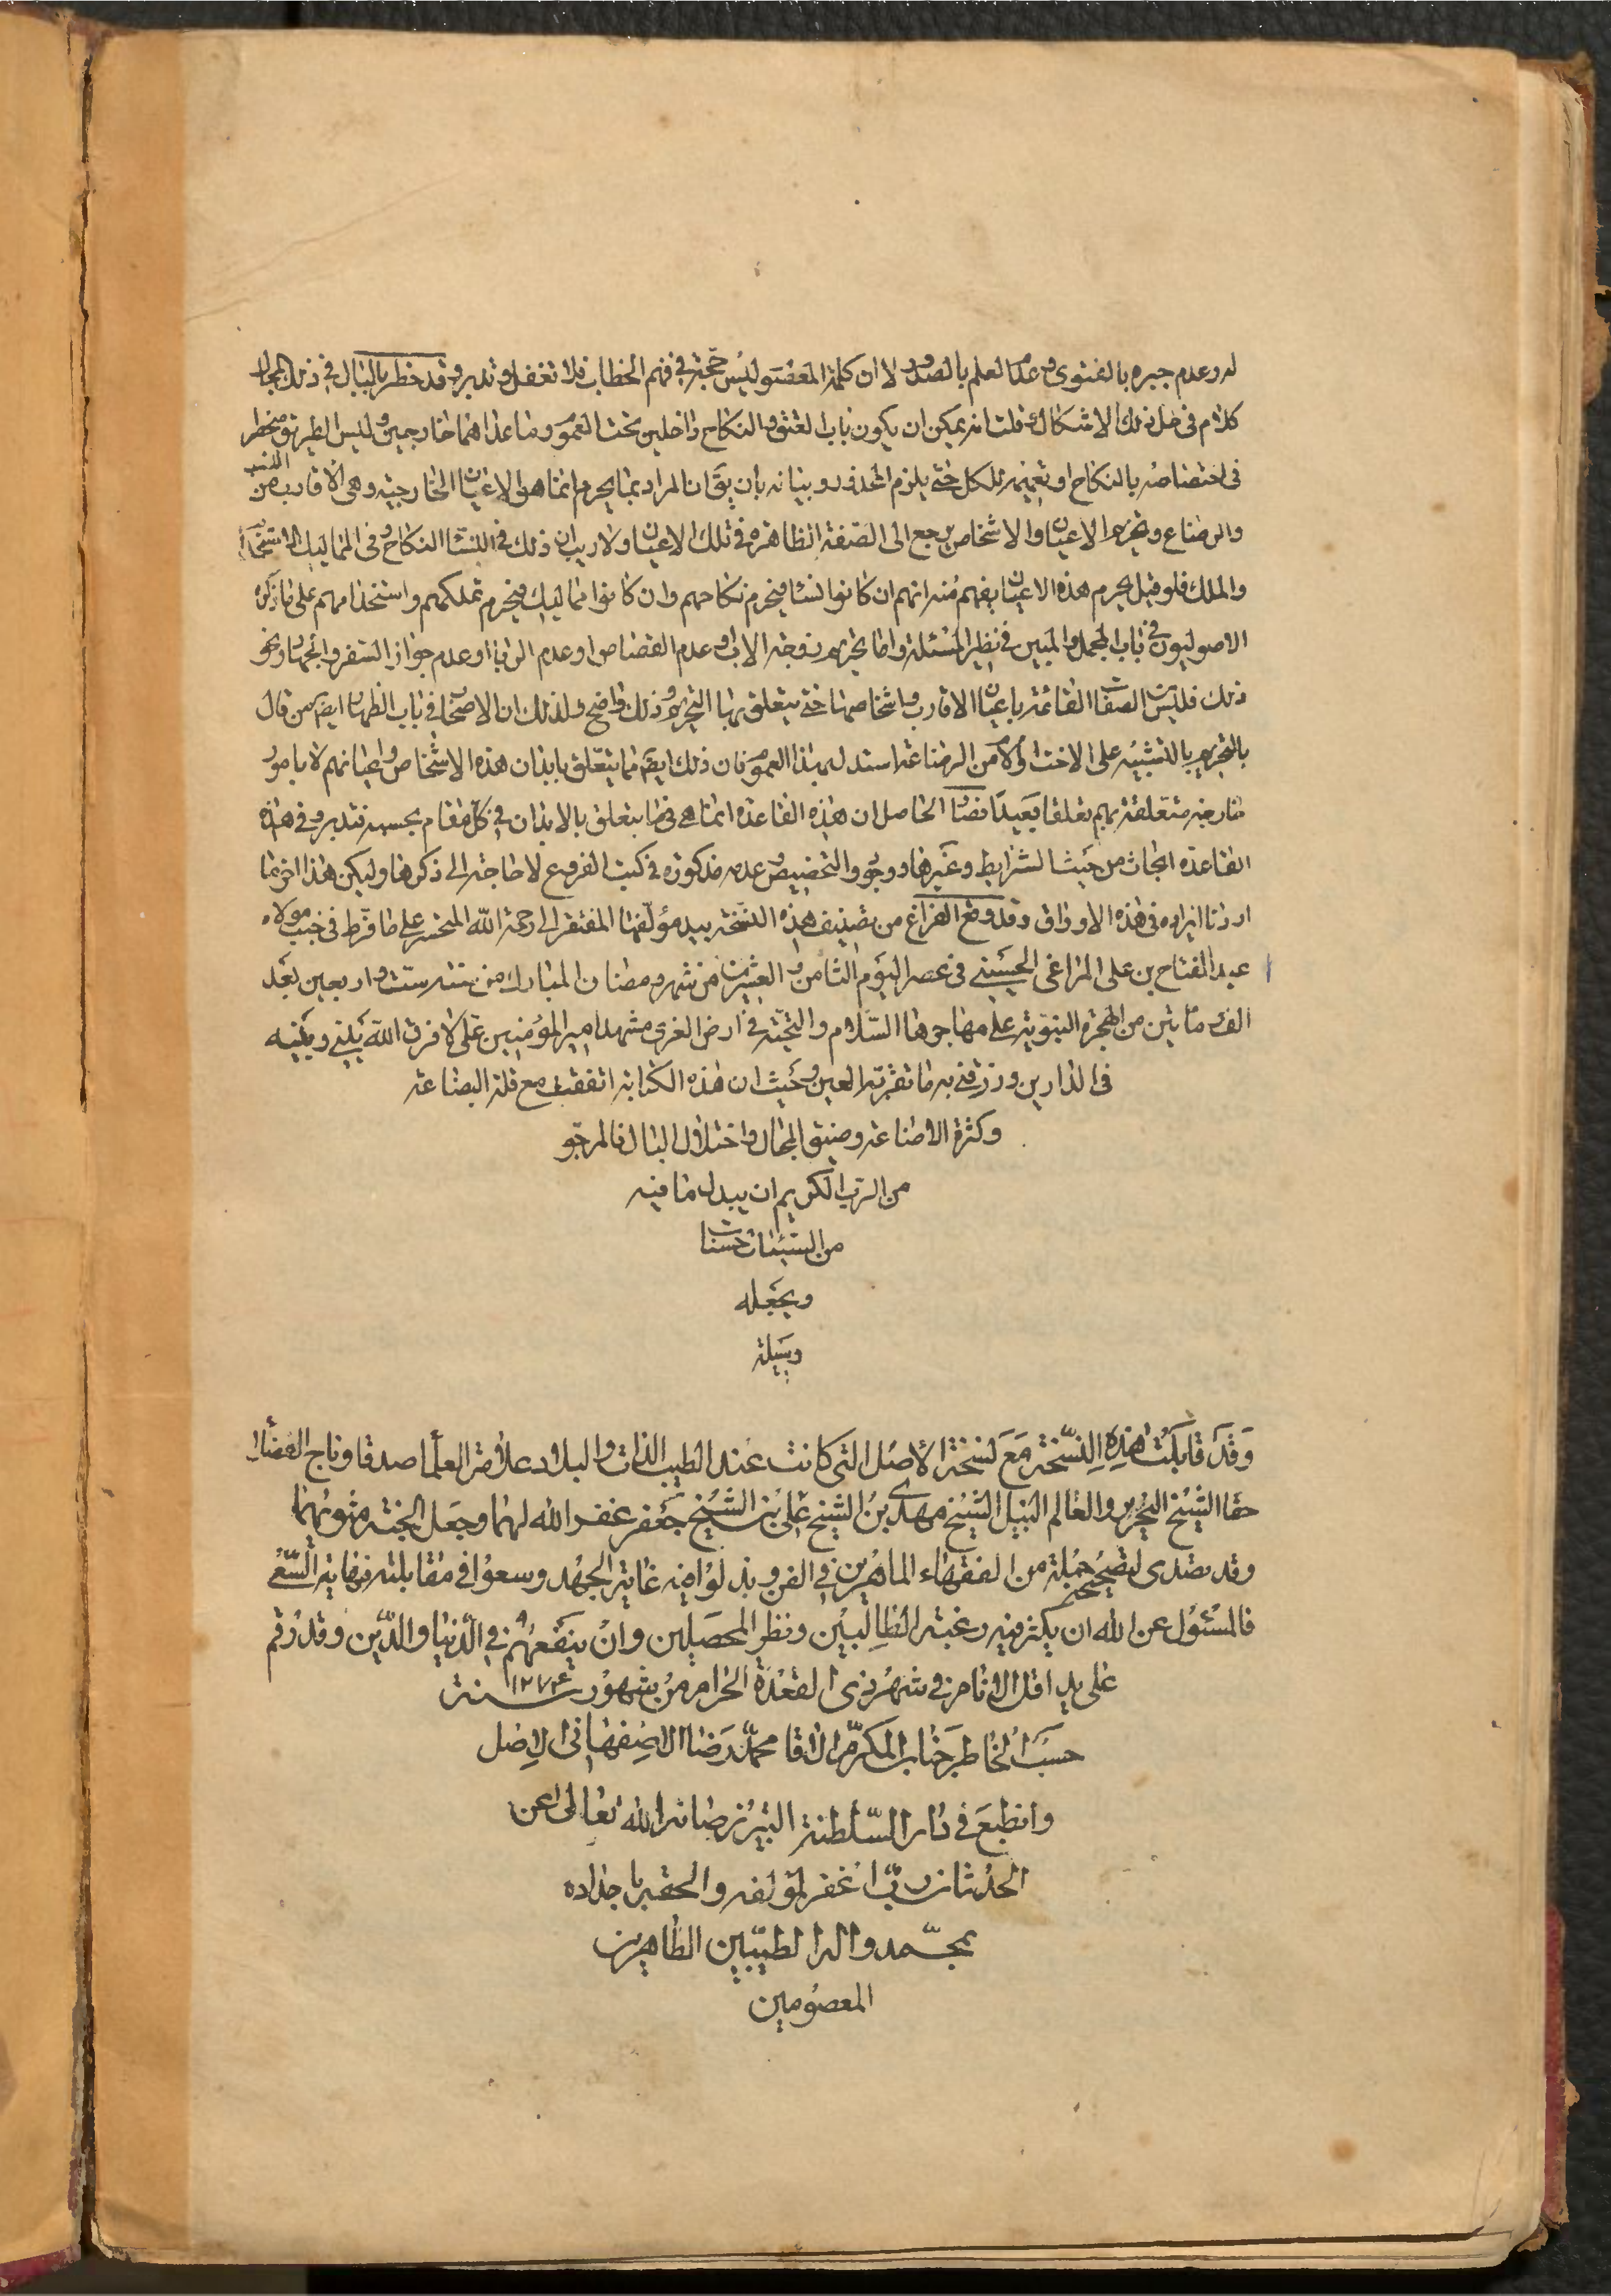 له وعدم جبره بالفتوى وعدم العلم بالصدور لا ان كلمة المعصوم ليس حجة في فهم الخطاب فلا تغفل وتدبر وقد خطر بالبال في ذلك المجال
كلام في حل ذلك الاشكال قلت انه يمكن ان يكون باب العتق والنكاح داخلين تحت العموم وما عداهما خارجين وليس الطريق منحصر
في اختصاصه بالنكاح او تعميمه للكل حتى يلزم المحذور وبيانه بان يقَ ان المراد بما يحرم انما هو الاعيان الخارجية وهي الأقارب من النسب
والرضاع وتحريم الاعيان والاشخاص يرجع الى الصفة الظاهرة في تلك الاعيان ولا ريب ان ذلك في النساء النكاح وفي المماليك الاستخدام
والملك فلو قيل يحرم هذه الاعيان يفهم منه انهم ان كانوا نساء فيحرم نكاحهم وان كانوا مماليك فيحرم تملكهم واستخدامهم على ما ذكره
الاصوليون في باب المجمل والمبين في نظير المسئلة واما تحريم زوجة الاب وعدم القصاص او عدم الربا او عدم جواز السفر والجهاد ونحو
ذلك فليس الصفات القائمة باعيان الاقارب واشخاصها حتى يتعلق بها التحريم وذلك واضح ولذلك ان الاصحاب في باب الظهار ايضَ من قال
بالتحريم بالتشبيه على الاخت او الام من الرضاعة استدل بهذا العموم فان ذلك ايضَ مما يتعلق بابدان هذه الاشخاص واعيانهم لا بامور
خارجة متعلقة بهم تعلقا بعيدا فصار الحاصل ان هذه القاعدة انما هي فيما يتعلق بالابدان في كل مقام بحسبه فتدبر وفي هذه
القاعدة ابحاث من حيث الشرايط وغيرها ووجوه والتخصيص وعدمه مذكورة في كتب الفروع لا حاجة الى ذكرها وليكن هذا اخر ما
اردنا ايراده في هذه الاوراق وقد وقع الفراغ من تصنيف هذه النسخة بيد مؤلفها المفتقر الى رحمة الله المتحسر على ما فرط في جنب مولاه
عبد الفتاح بن علي المراغي الحسيني في عصر اليوم الثامن والعشرين من شهر رمضان المبارك من سنة ست واربعين بعد
الف ومأتين من الهجرة النبوية على مهاجرها السلام والتحية في ارض الغري مشهد امير المؤمنين علي لا فرق الله بيني وبينه
في الدارين ورزقني به ما تقر به العين وحيث ان هذه الكتابة اتفقت مع قلة البضاعة
وكثرة الاضاعة وضيق المجال واختلال البال فالمرجو
من الرب الكريم ان يبدل ما فيه
من السيئات حسنات
ويجعله
وسيلة
وَقَد قابَلتُ هذِهِ النسّخة مَعَ نسْخة الأصْل التى كانت عند الطيب الذات والبلاد علامة العلماء صدقا وتاج الفضلاء
حقا الشيخ النحرير والعالم النبيل الشيخ مهدى بن الشيخ على بن الشيخ جعفر غفر الله لهما وجعل الجنة مثويهما
وقد تصدى لتصحيحه جملة من الفقهاء الماهرين في الفن وبذلوا فيه غاية الجهد وسعوا في مقابلته نهاية السعى
فالمسئول عن الله ان يكثر فيه رغبة الطالبين ونظر المحصلين وان ينفعهم في الدنيا والدين وقد رقم
على يد اقل الانام في شهر ذى القعدة الحرام من شهور سنة ١٢٧٤
حسب الخاطر جناب المكرم الاقا محمد رضا الاصفهانى الاصل
وانطبع في دار السلطنة التبريز صانه الله تعالى عن
الحدثان رب اغفر لمؤلفه والحقير باجداده
بمحمد واله الطيبين الطاهرين
المعصومين